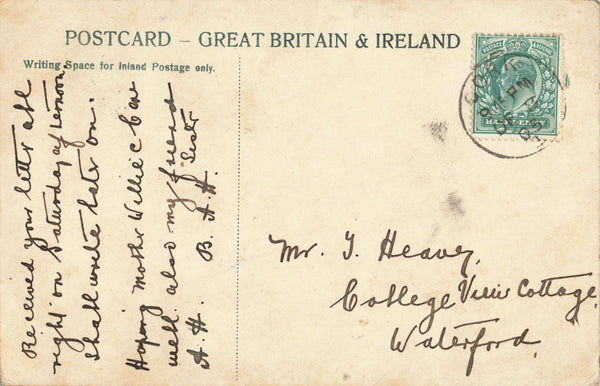 POSTCARD – GREAT BRITAIN & IRELAND
Writing Space for Inland Postage only.
Received your letter all
right on Saturday afternoon.
Shall write later on.
Hoping Mother Willie & are
well also my friend
A. H. B. A. H.
Mr. J. Heavey,
College View Cottage,
Waterford.
POSTAGE
HALFPENNY
PM